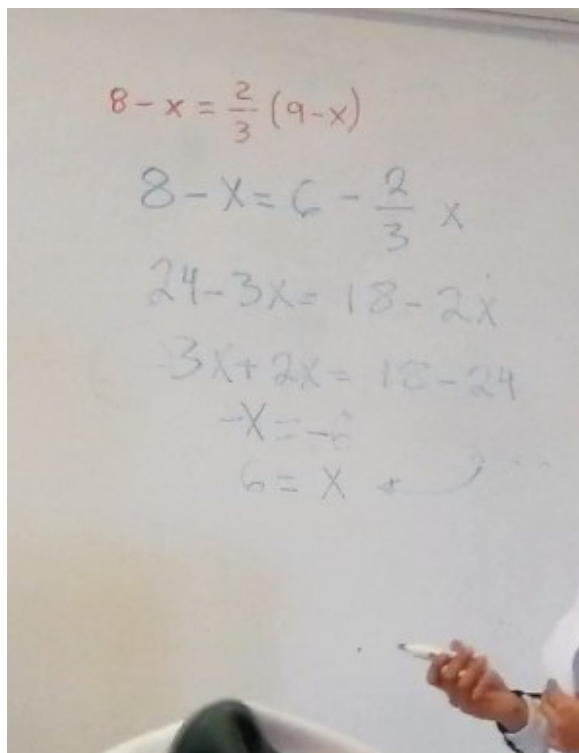 8 - x = 2/3 (9 - x)
8 - x = 6 - 2/3 x
24 - 3x = 18 - 2x
3x + 2x = 18 - 24
-x = -6
6 = x